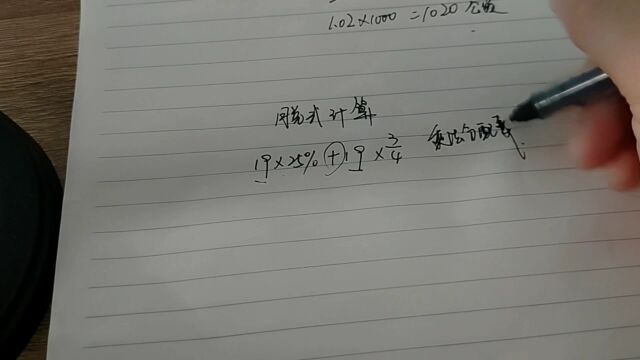 1.02×1000=1020 公顷
递等式计算
19×25%+19×3/4 乘法分配律